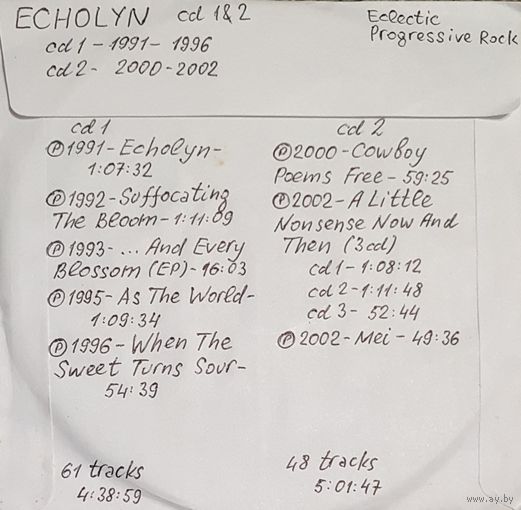 ECHOLYN cd 1&2
cd 1 - 1991 - 1996
cd 2 - 2000 - 2002
Eclectic
Progressive Rock
cd 1
Ⓟ1991 - Echolyn -
1:07:32
Ⓟ1992 - Suffocating
The Bloom - 1:11:09
Ⓟ1993 - ... And Every
Blossom (EP) - 16:03
Ⓟ1995 - As The World -
1:09:34
Ⓟ1996 - When The
Sweet Turns Sour -
54:39
61 tracks
4:38:59
cd 2
Ⓟ2000 - Cowboy
Poems Free - 59:25
Ⓟ2002 - A Little
Nonsense Now And
Then (3cd)
cd 1 - 1:08:12
cd 2 - 1:11:48
cd 3 - 52:44
Ⓟ2002 - Mei - 49:36
48 tracks
5:01:47
www.ay.by